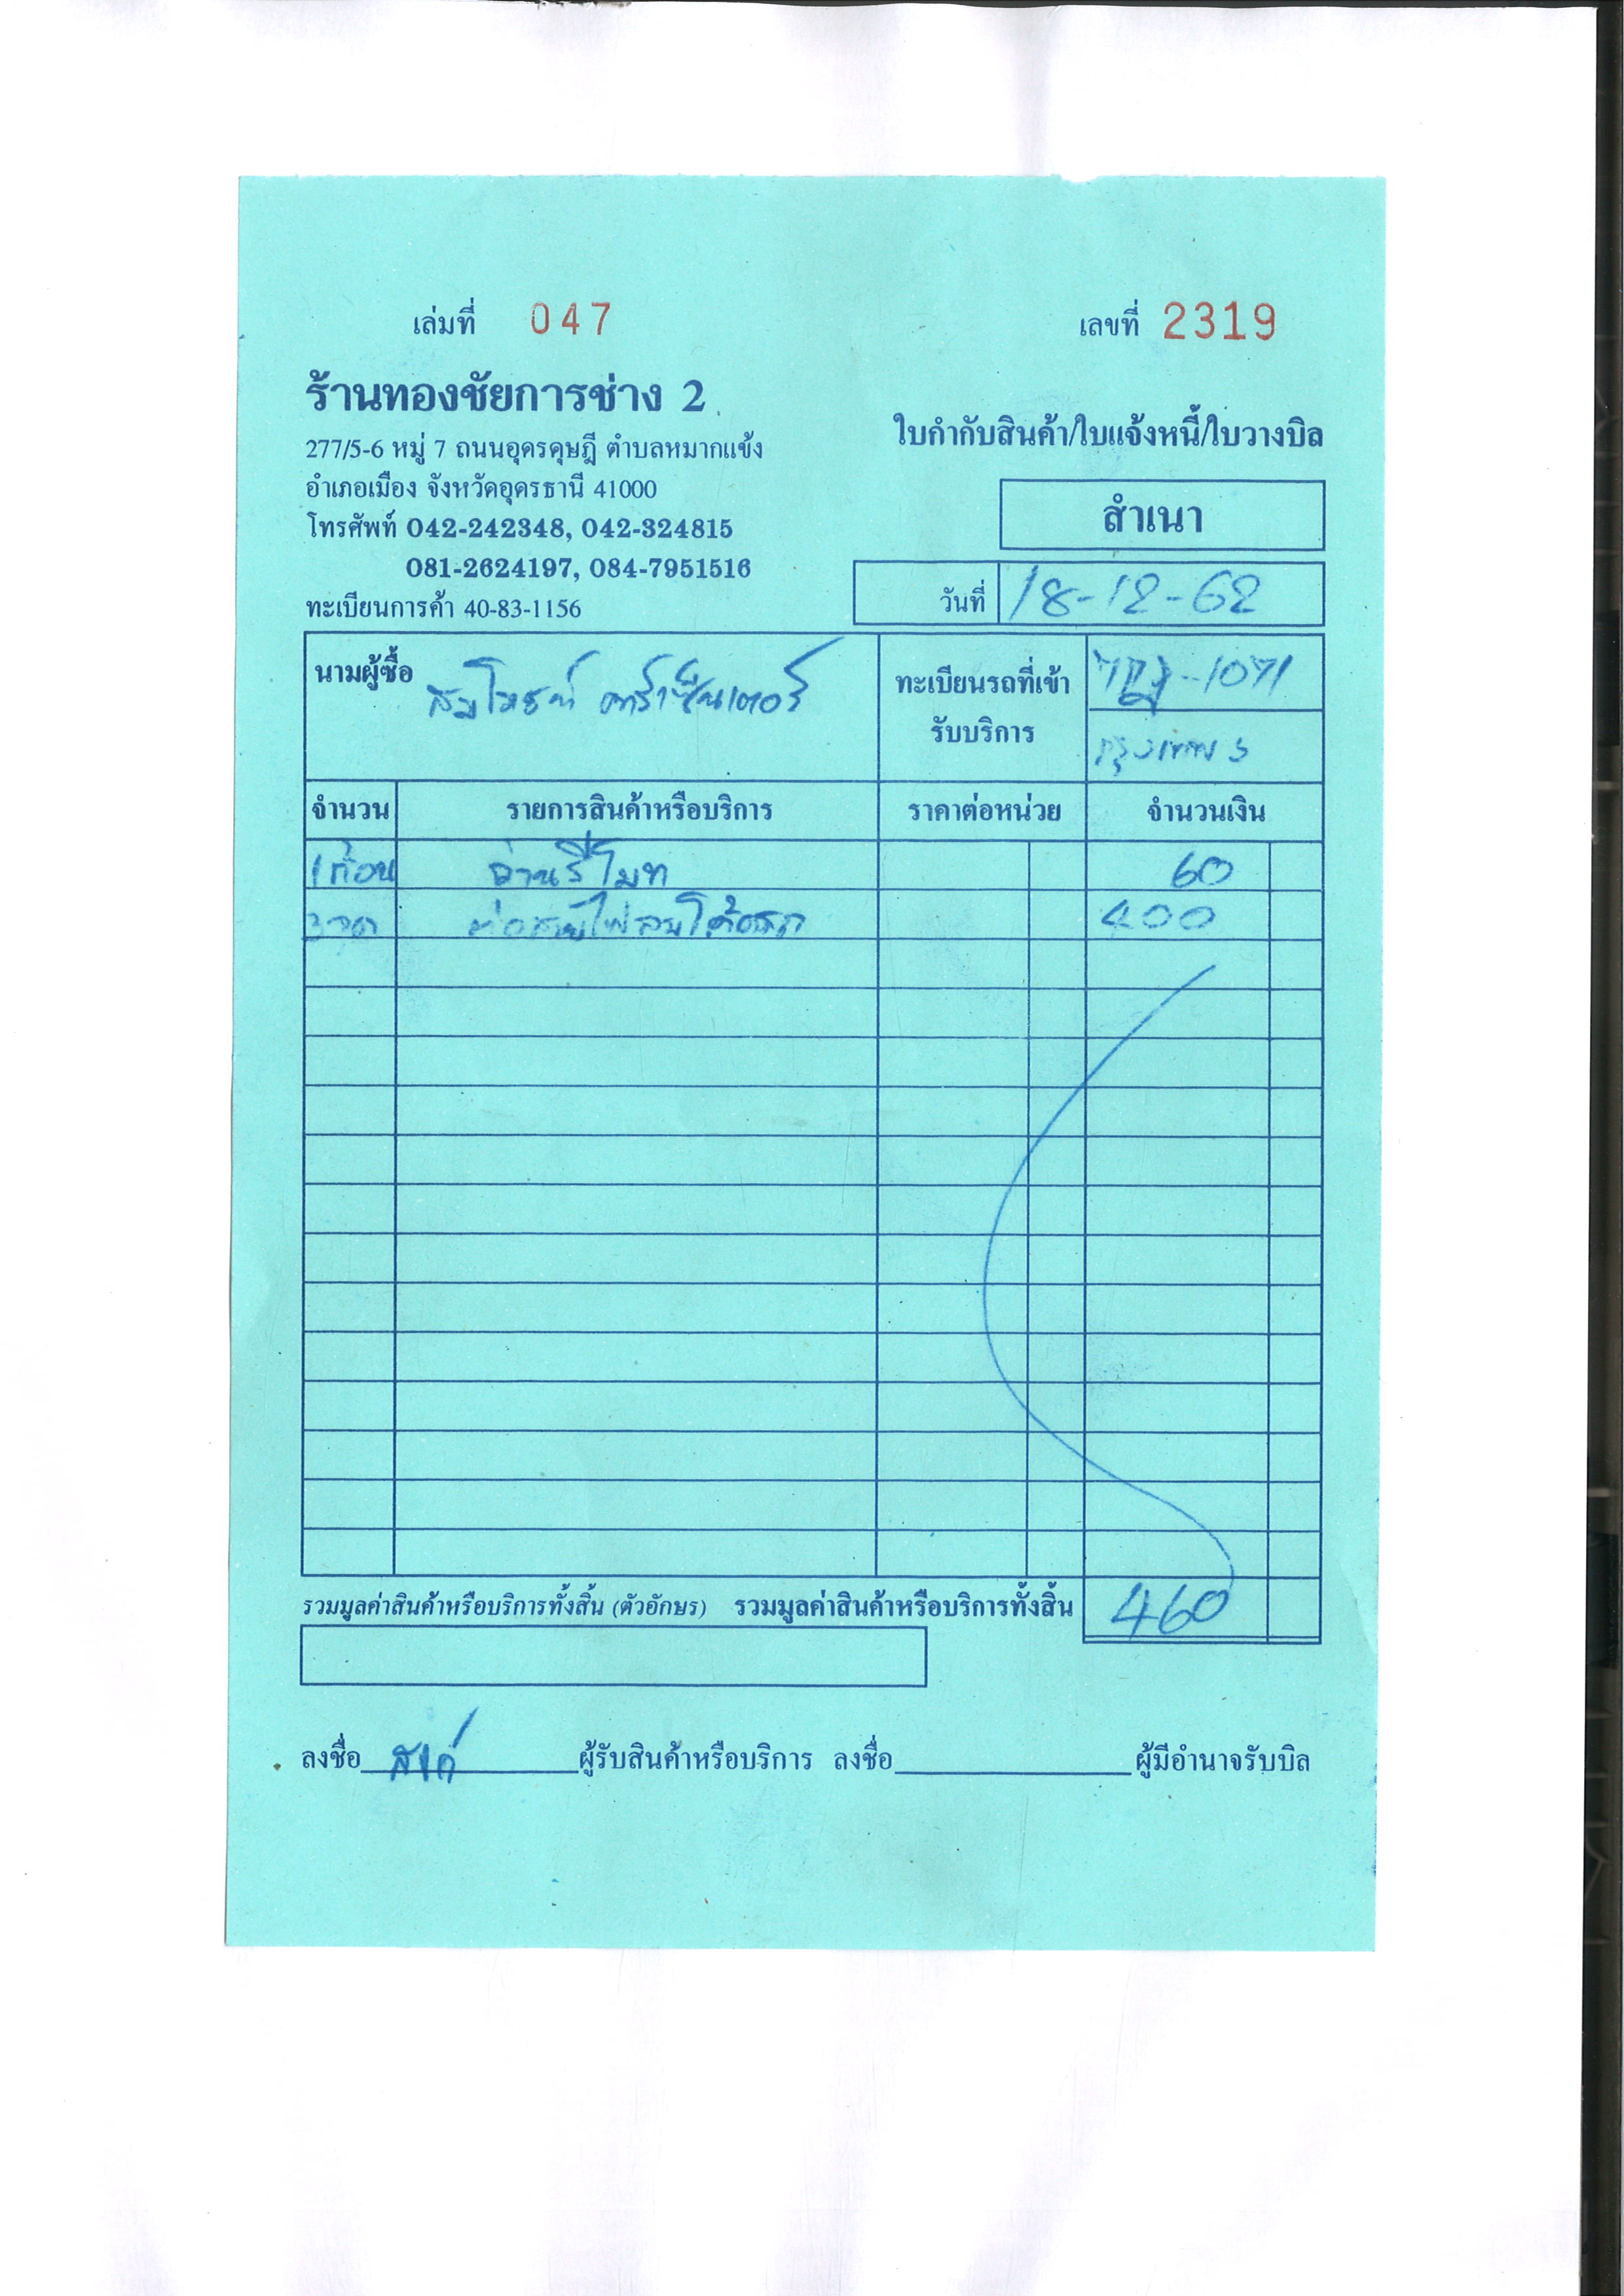 เล่มที่ 047 เลขที่ 2319
ร้านทองชัยการช่าง 2
ใบกำกับสินค้า/ใบแจ้งหนี้/ใบวางบิล
277/5-6 หมู่ 7 ถนนอุดรดุษฎี ตำบลหมากแข้ง
อำเภอเมือง จังหวัดอุดรธานี 41000
สำเนา
โทรศัพท์ 042-242348, 042-324815
081-2624197, 084-7951516
วันที่ 18-12-62
ทะเบียนการค้า 40-83-1156
นามผู้ซื้อ สมโภชน์ คาร์เซ็นเตอร์
ทะเบียนรถที่เข้า -1071
รับบริการ กรุงเทพฯ
จำนวน รายการสินค้าหรือบริการ ราคาต่อหน่วย จำนวนเงิน
1 ก้อน ถ่านรีโมท 60
ต่อสายไฟ 400
รวมมูลค่าสินค้าหรือบริการทั้งสิ้น (ตัวอักษร) รวมมูลค่าสินค้าหรือบริการทั้งสิ้น 460
ลงชื่อ ผู้รับสินค้าหรือบริการ ลงชื่อ ผู้มีอำนาจรับบิล